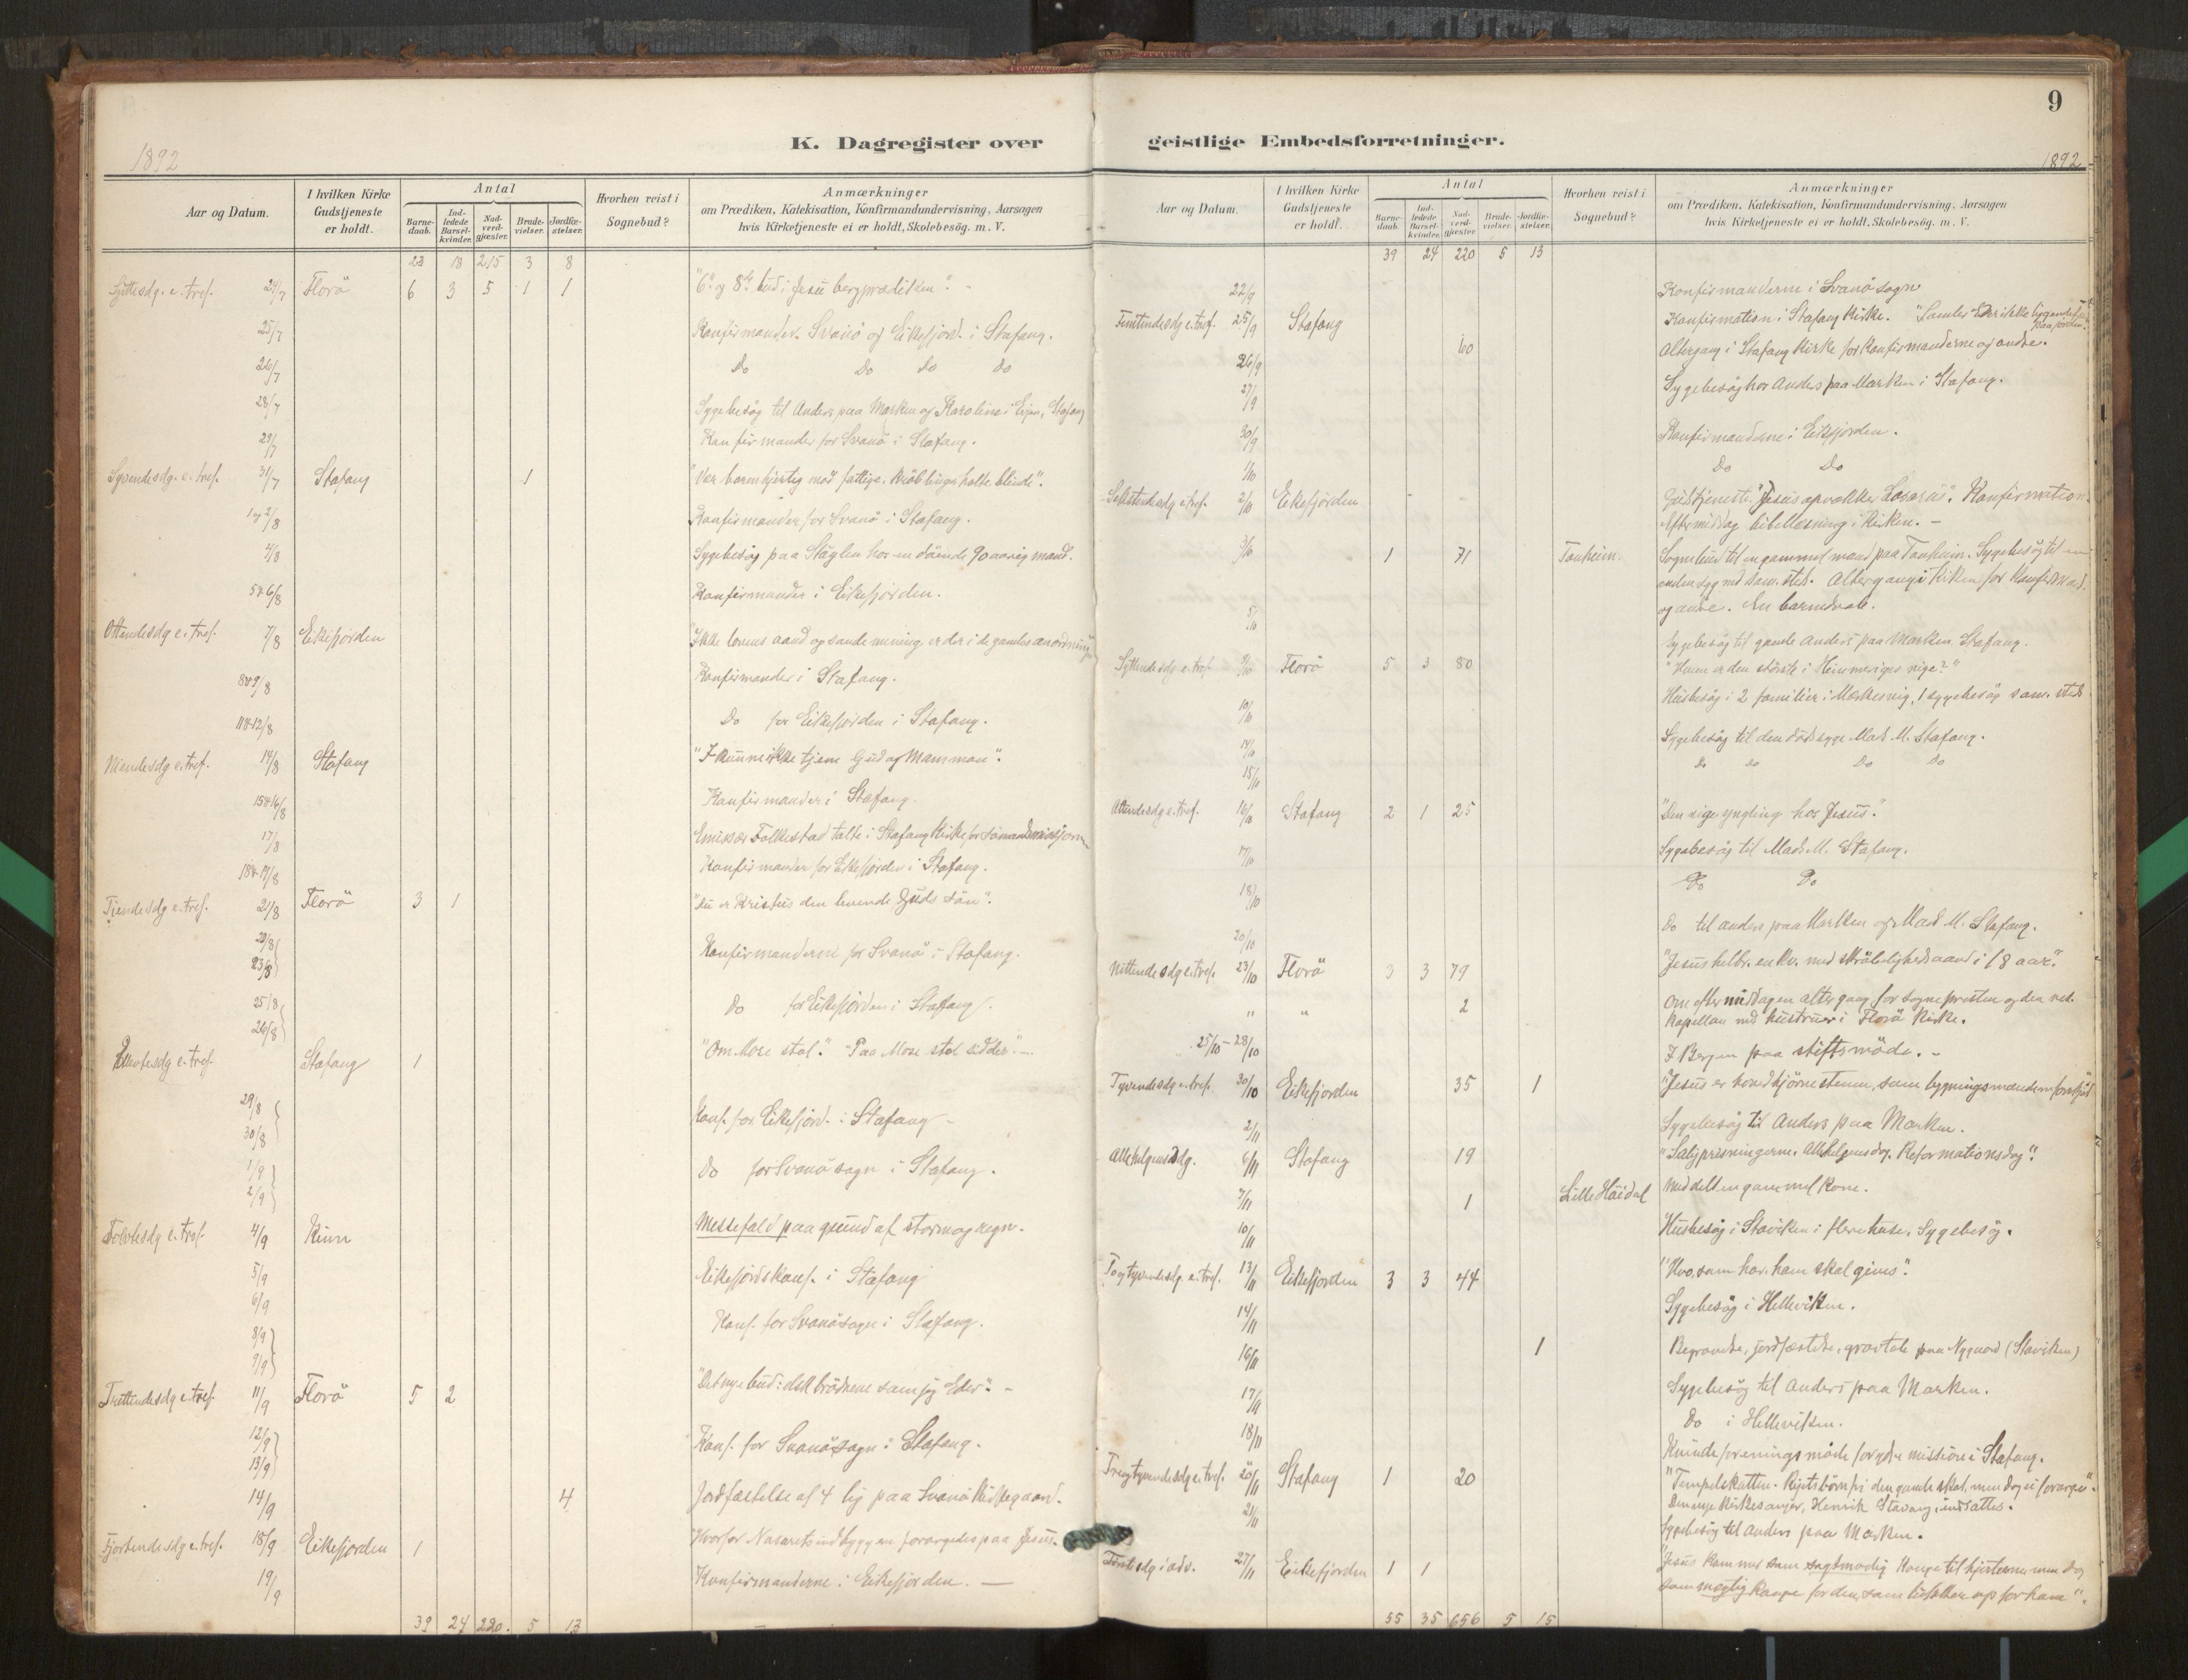 9
K. Dagregister over geistlige Embedsforretninger.
1892
1892
Aar og Datum.
I hvilken Kirke Gudstjeneste er holdt.
Antal
Barne-daab.
Ind-ledede Barsel-kvinder.
Nad-verd-gjæster.
Brude-vielser.
Jordfæ-stelser.
Hvorhen reist i Sognebud?
Anmærkninger
om Prædiken, Katekisation, Konfirmandundervisning, Aarsagen
hvis Kirketjeneste ei er holdt, Skolebesög. m. V.
23 18 215 3 8
Sjettesdg. e. tref. 24/7 Florö 6 3 5 1 1 "6te og 8de bud i Jesu bergprædiken". -
25/7 Konfirmander. Svanö og Eikefjord. i Stafang.
26/7 Do Do Do Do
28/7 Sygebesög til Anders paa Marken og Karoline i Stafang
29/7 Konfirmander for Svanö i Stafang.
Syvendesdg. e. tref. 31/7 Stafang 1 "Vær barmhjertig mod fattige, kröblinge, halte, blinde".
1 og 2/8 Konfirmander for Svanö i Stafang.
4/8 Sygebesög paa hos en döende 90 aarig mand.
5 & 6/8 Konfirmander i Eikefjorden.
Ottendesdg e. tref. 7/8 Eikefjorden "Ikke lovens aand og sande mening er der i de gamles anordninger
8 & 9/8 Konfirmander i Stafang.
11 & 12/8 Do for Eikefjorden i Stafang.
Niendesdg e. tref. 14/8 Stafang "I kunne ikke tjene Gud og Mammon".
15 & 16/8 Konfirmander i Stafang.
17/8 Emissær Folkestad talte i Stafang Kirke for
18 & 19/8 Konfirmander for Eikefjorden i Stafang.
Tiendesdg e. tref. 21/8 Florö 3 1 "Du er Kristus den levende Guds sön".
23/8 Konfirmanderne for Svanö i Stafang.
25/8
26/8 Do for Eikefjorden i Stafang.
Ellevtesdg e. tref. Stafang 1 "Om Mose stol." "Paa Mose stol sidder". -
29/8
30/8 Konf. for Eikefjord. i Stafang -
1/9
2/9 Do for Svanö sogn i Stafang.
Tolvtesdg e. tref. 4/9 Kinn Messefald paa grund af storm og regn.
5/9 Eikefjordskonf. i Stafang
6/9
8/9 Konf. for Svanösogn i Stafang.
9/9
Trettendesdg e. tref. 11/9 Florö 5 2 "Det nye bud: elsk brödrene som jeg Eder". -
12/9
13/9 Konf. for Svanösogn i Stafang.
14/9 4 Jordfæstelse af 4 lig paa Svanö Kirkegaard.
Fjortendesdg e. tref. 18/9 Eikefjorden 1 Hvorfor Nasarets indbyggere forargedes paa Jesus.
19/9 Konfirmanderne i Eikefjorden. -
39 24 220. 5 13
Aar og Datum.
I hvilken Kirke Gudstjeneste er holdt.
Antal
Barne-daab.
Ind-ledede Barsel-kvinder.
Nad-verd-gjæster.
Brude-vielser.
Jordfæ-stelser.
Hvorhen reist i Sognebud?
Anmærkninger
om Prædiken, Katekisation, Konfirmandundervisning, Aarsagen
hvis Kirketjeneste ei er holdt, Skolebesög. m. V.
39 24 220 5 13
22/9 Konfirmanderne i Svanö sogn
Femtendesdg e. tref. 25/9 Stafang Konfirmation i Stafang Kirke. "Samler Eder ikke liggendefæ paa jorden".
26/9 60 Altergang i Stafang Kirke for Konfirmanderne og andre.
27/9 Sygebesög hos Anders paa Marken i Stafang.
30/9 Konfirmanderne i Eikefjorden.
1/10 Do Do
Sekstendesdg e. tref. 2/10 Eikefjorden Gudstjeneste. "Jesus opvækker Lasarus". Konfirmation.
Aftermiddag bibellæsning i Kirken. -
3/10 1 71 Tonheim. Sognebud til en gammel mand paa Tonheim. Sygebesög til en
anden syg md sam. sted. Altergang i Kirken for Konfirmand.
og andre. En barnedaab.
5/10 Sygebesög til gamle Anders paa Marken. Stafang.
Syttendesdg e. tref. 9/10 Florö 5 3 80 "Hvem er den störste i Himmeriges rige?"
Husbesög i 2 familier i 1 sygebesög sam. sted.
10/10
14/10 Sygebesög til den dödssyge Mads M. Stafang.
15/10 do do Do Do
Attendesdg e. tref. 16/10 Stafang 2 1 25 "Den rige yngling hos Jesus".
17/10 Sygebesög til Mads M. Stafang.
18/10 Do Do
20/10 Do til Anders paa Marken og Mads M. Stafang.
Nittendesdg e. tref. 23/10 Florö 3 3 79 "Jesus helbr. en kv. med skröbelighedsaand i 18 aar".
" " 2 Om eftermiddagen altergang for sognepresten og den res.
Kapellan med hustruer i Florö Kirke.
25/10 - 28/10 I Bergen paa stiftsmöde. -
Tyvendesdg e. tref. 30/10 Eikefjorden 35 1 "Jesus er hovedhjörnestenen, som bygningsmændene forskjöd
2/11 Sygebesög til Anders paa Marken.
Allehelgensdg. 6/11 Stafang 19 "Saligprisningerne. Allehelgensdag. Reformationsdag".
7/11 1 Lille Höidal Meddelt en gammel Kone.
10/11 Husbesög i Staviken i flere huse. Sygebesög.
Togtyvendesdg. e. tref. 13/11 Eikefjorden 3 3 44 "Hvo, som har, ham skal gives".
14/11 Sygebesög i Helleviken.
16/11 1 Begravelse, jordfæstelse, gravtale paa Nygaard (Staviken)
17/11 Sygebesög til Anders paa Marken.
18/11 Do i Helleviken.
Kvindeforeningsmöde for ydre missionen i Stafang.
Tregtyvendesdg e. tref. 20/11 Stafang 1 20 "Tempelskatten. Rigets börn fri den gamle skat, men dog ei forarge".
Den nye Kirkesanger, Henrik Stavang, indsattes.
21/11 Sygebesög til Anders paa Marken.
Förstesdg i adv. 27/11 Eikefjorden 1 1 "Jesus kommer som sagtmodig Konge til hjerterne, men dog
som mægtig Konge for dem, som lukker op for ham".
55 35 656 5 15